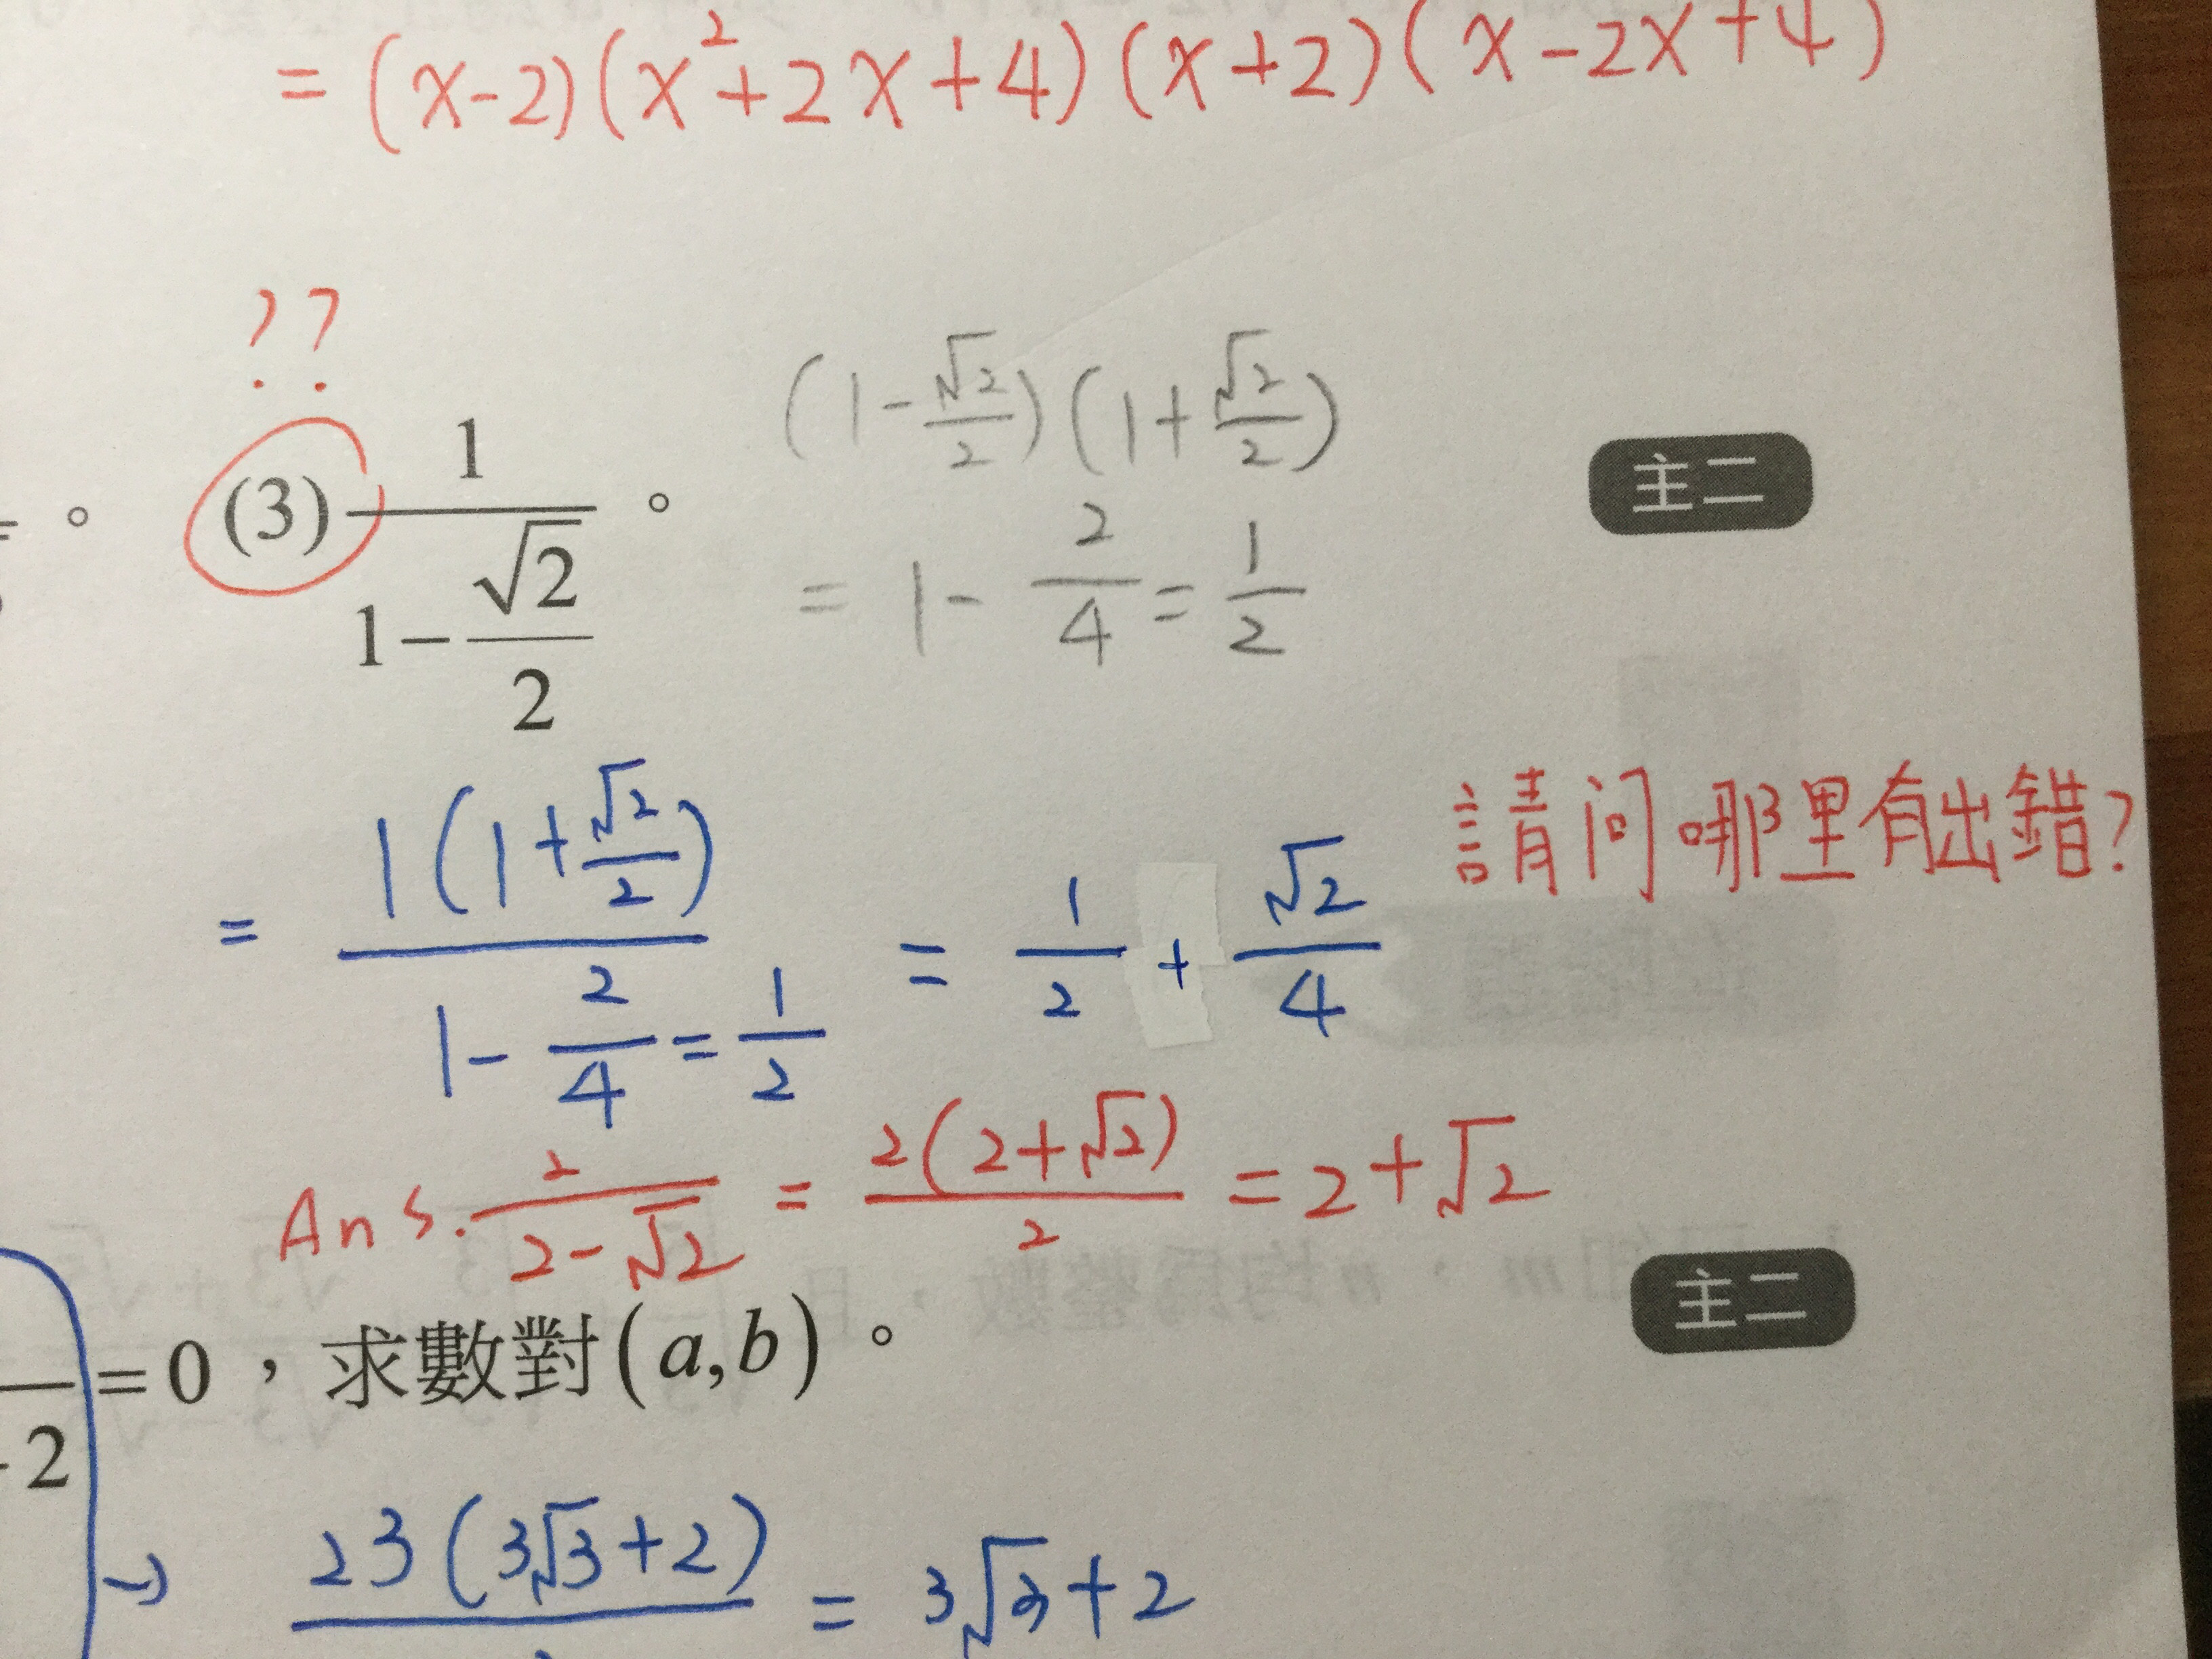 = (x-2)(x²+2x+4)(x+2)(x-2x+4)
??
。 (3) 1/(1-√2/2) 。 (1-√2/2)(1+√2/2) 主二
= 1-2/4 = 1/2
請问哪里有出錯?
= 1(1+√2/2)/(1-2/4=1/2) = 1/2 + √2/4
Ans. 2/(2-√2) = 2(2+√2)/2 = 2+√2
主二
=0,求數對(a,b)。
2
→ 23(3√3+2) = 3√3+2